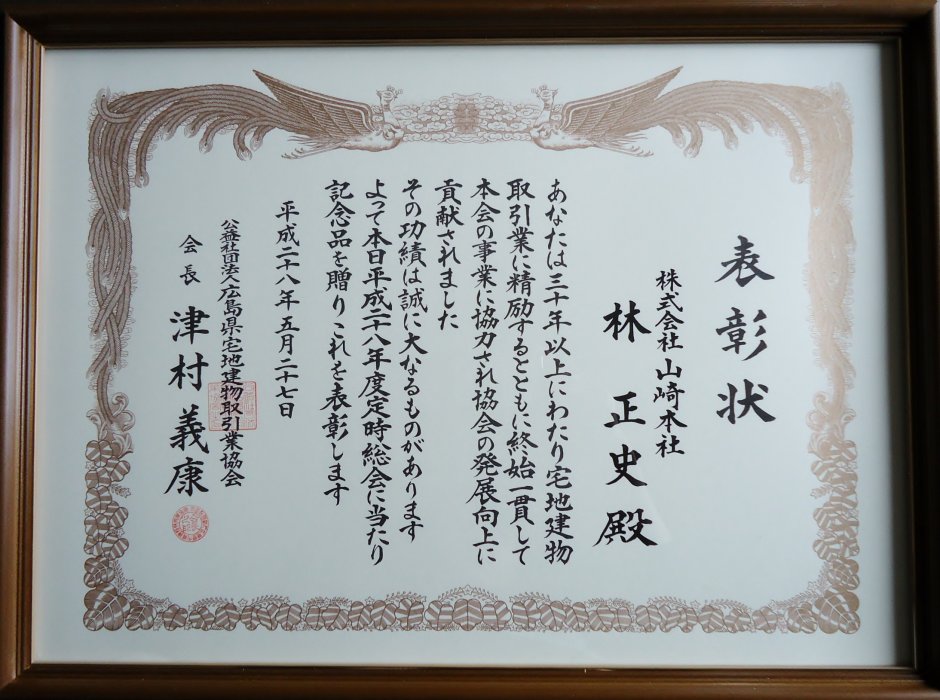 表彰状
株式会社山崎本社
林正史殿
あなたは三十年以上にわたり宅地建物
取引業に精励するとともに終始一貫して
本会の事業に協力され協会の発展向上に
貢献されました
その功績は誠に大なるものがあります
よって本日平成二十八年度定時総会に当たり
記念品を贈りこれを表彰します
平成二十八年五月二十七日
公益社団法人広島県宅地建物取引業協会
会長 津村義康